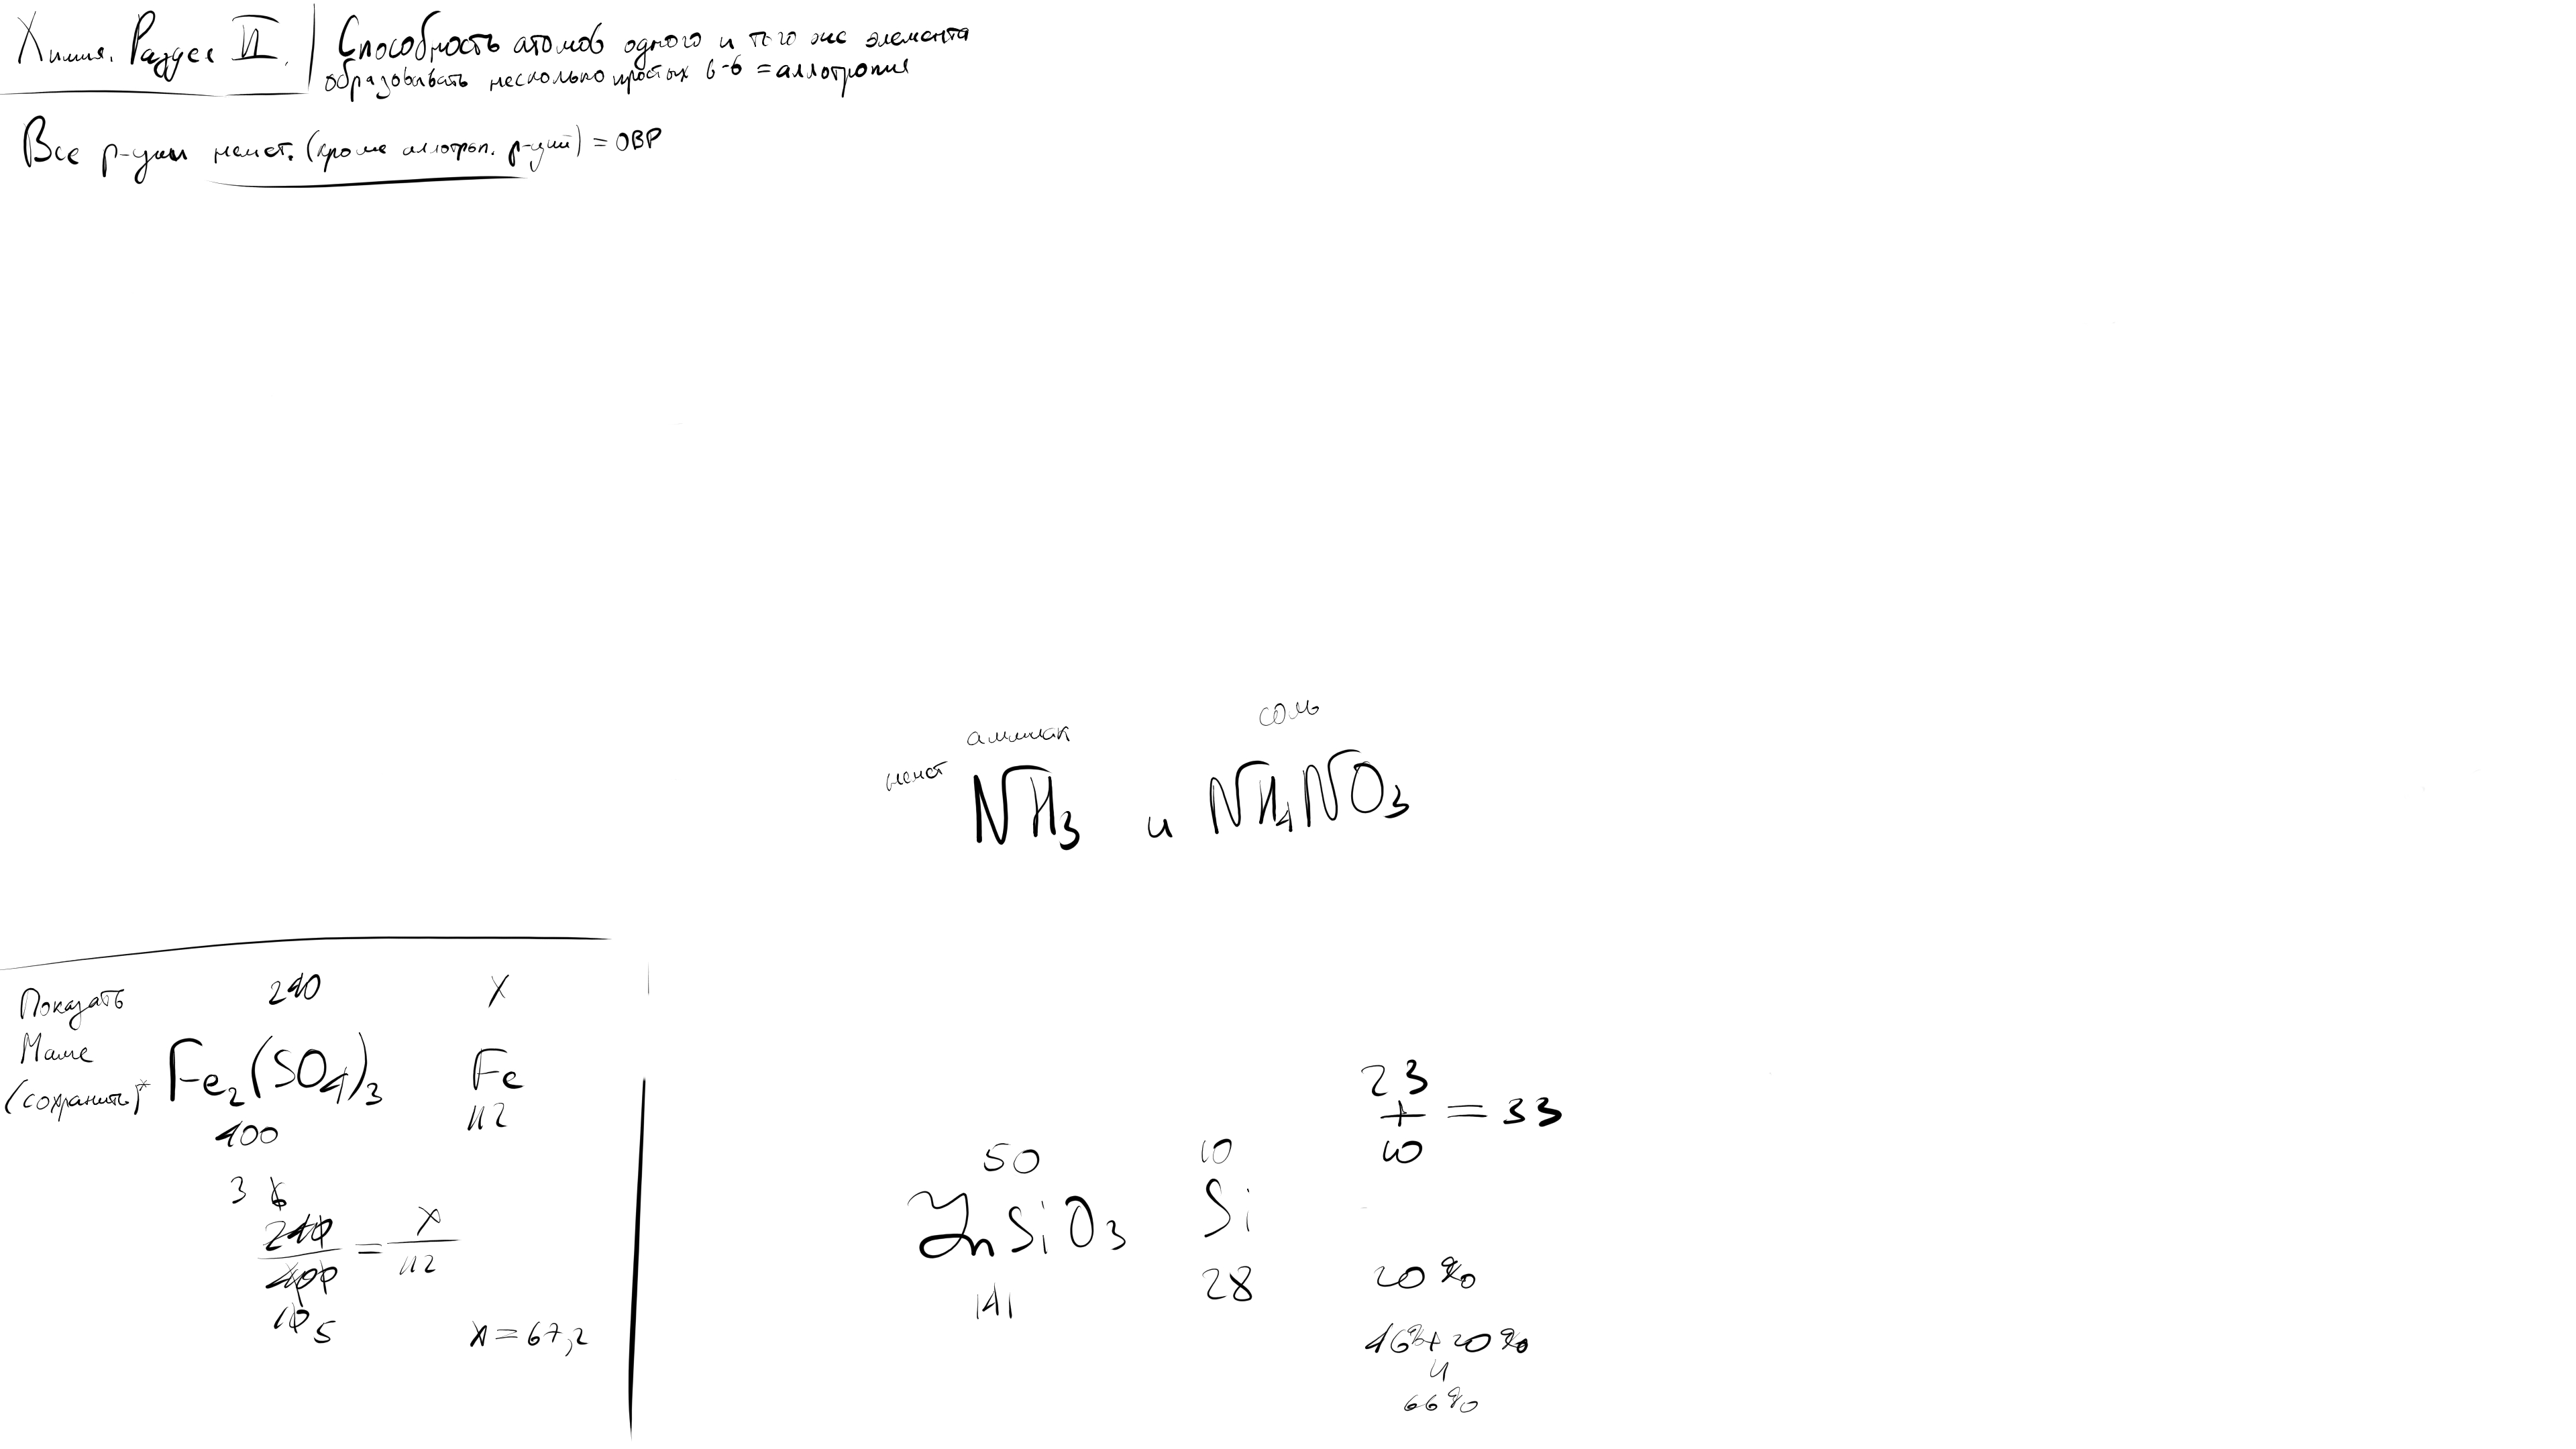 Химия. Раздел VI.
Способность атомов одного и того же элемента
образовывать несколько простых в-в = аллотропия
Все р-ции немет. (кроме аллотроп. р-ций) = ОВР
аммиак соль
немет
NH₃ и NH₄NO₃
Показать
Маме
(сохранить)*
240 X
Fe₂(SO₄)₃ Fe
400 112
3 6
240/400 = X/112
10 5
X = 67,2
50 10
ZnSiO₃ Si
141 28
23
+ = 33
10
20%
46% + 20%
66%